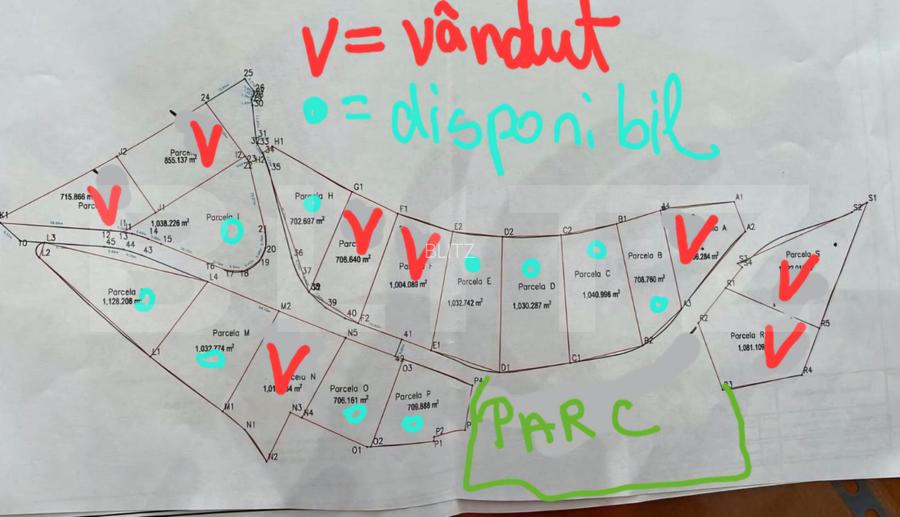 V = vândut
O = disponibil
25
24
26
30
31
32 33
34
H1
I2
22
23
H2
35
J2
Parce
855.137 m²
V
715.866 m²
Parc
V
K1
J1
1,038.226 m²
Parcela I
Parcela H
702.697 m²
G1
Parc
706.640 m²
V
F1
1,004.089 m²
V
BLITZ
E2
Parcela E
1,032.742 m²
D2
Parcela D
1,030.287 m²
C2
Parcela C
1,040.996 m²
B1
Parcela B
708.760 m²
A4
A1
A2
A
V
A3
S1
S2
S3
S4
Parcela S
V
R1
R2
R5
Parcela R
1,081.109
V
R4
R3
10
L3
L2
I1
12
13
14
15
45
44
43
16
17
18
19
20
21
36
37
38
39
40
41
42
F2
L4
Parcela
1,128.208 m²
L1
M2
Parcela M
1,032.774 m²
M1
N5
N
V
N1
N2
N3
N4
Parcela O
706.161 m²
O3
O1
O2
Parcela P
709.888 m²
P4
P2
P1
P
E1
D1
C1
B2
PARC